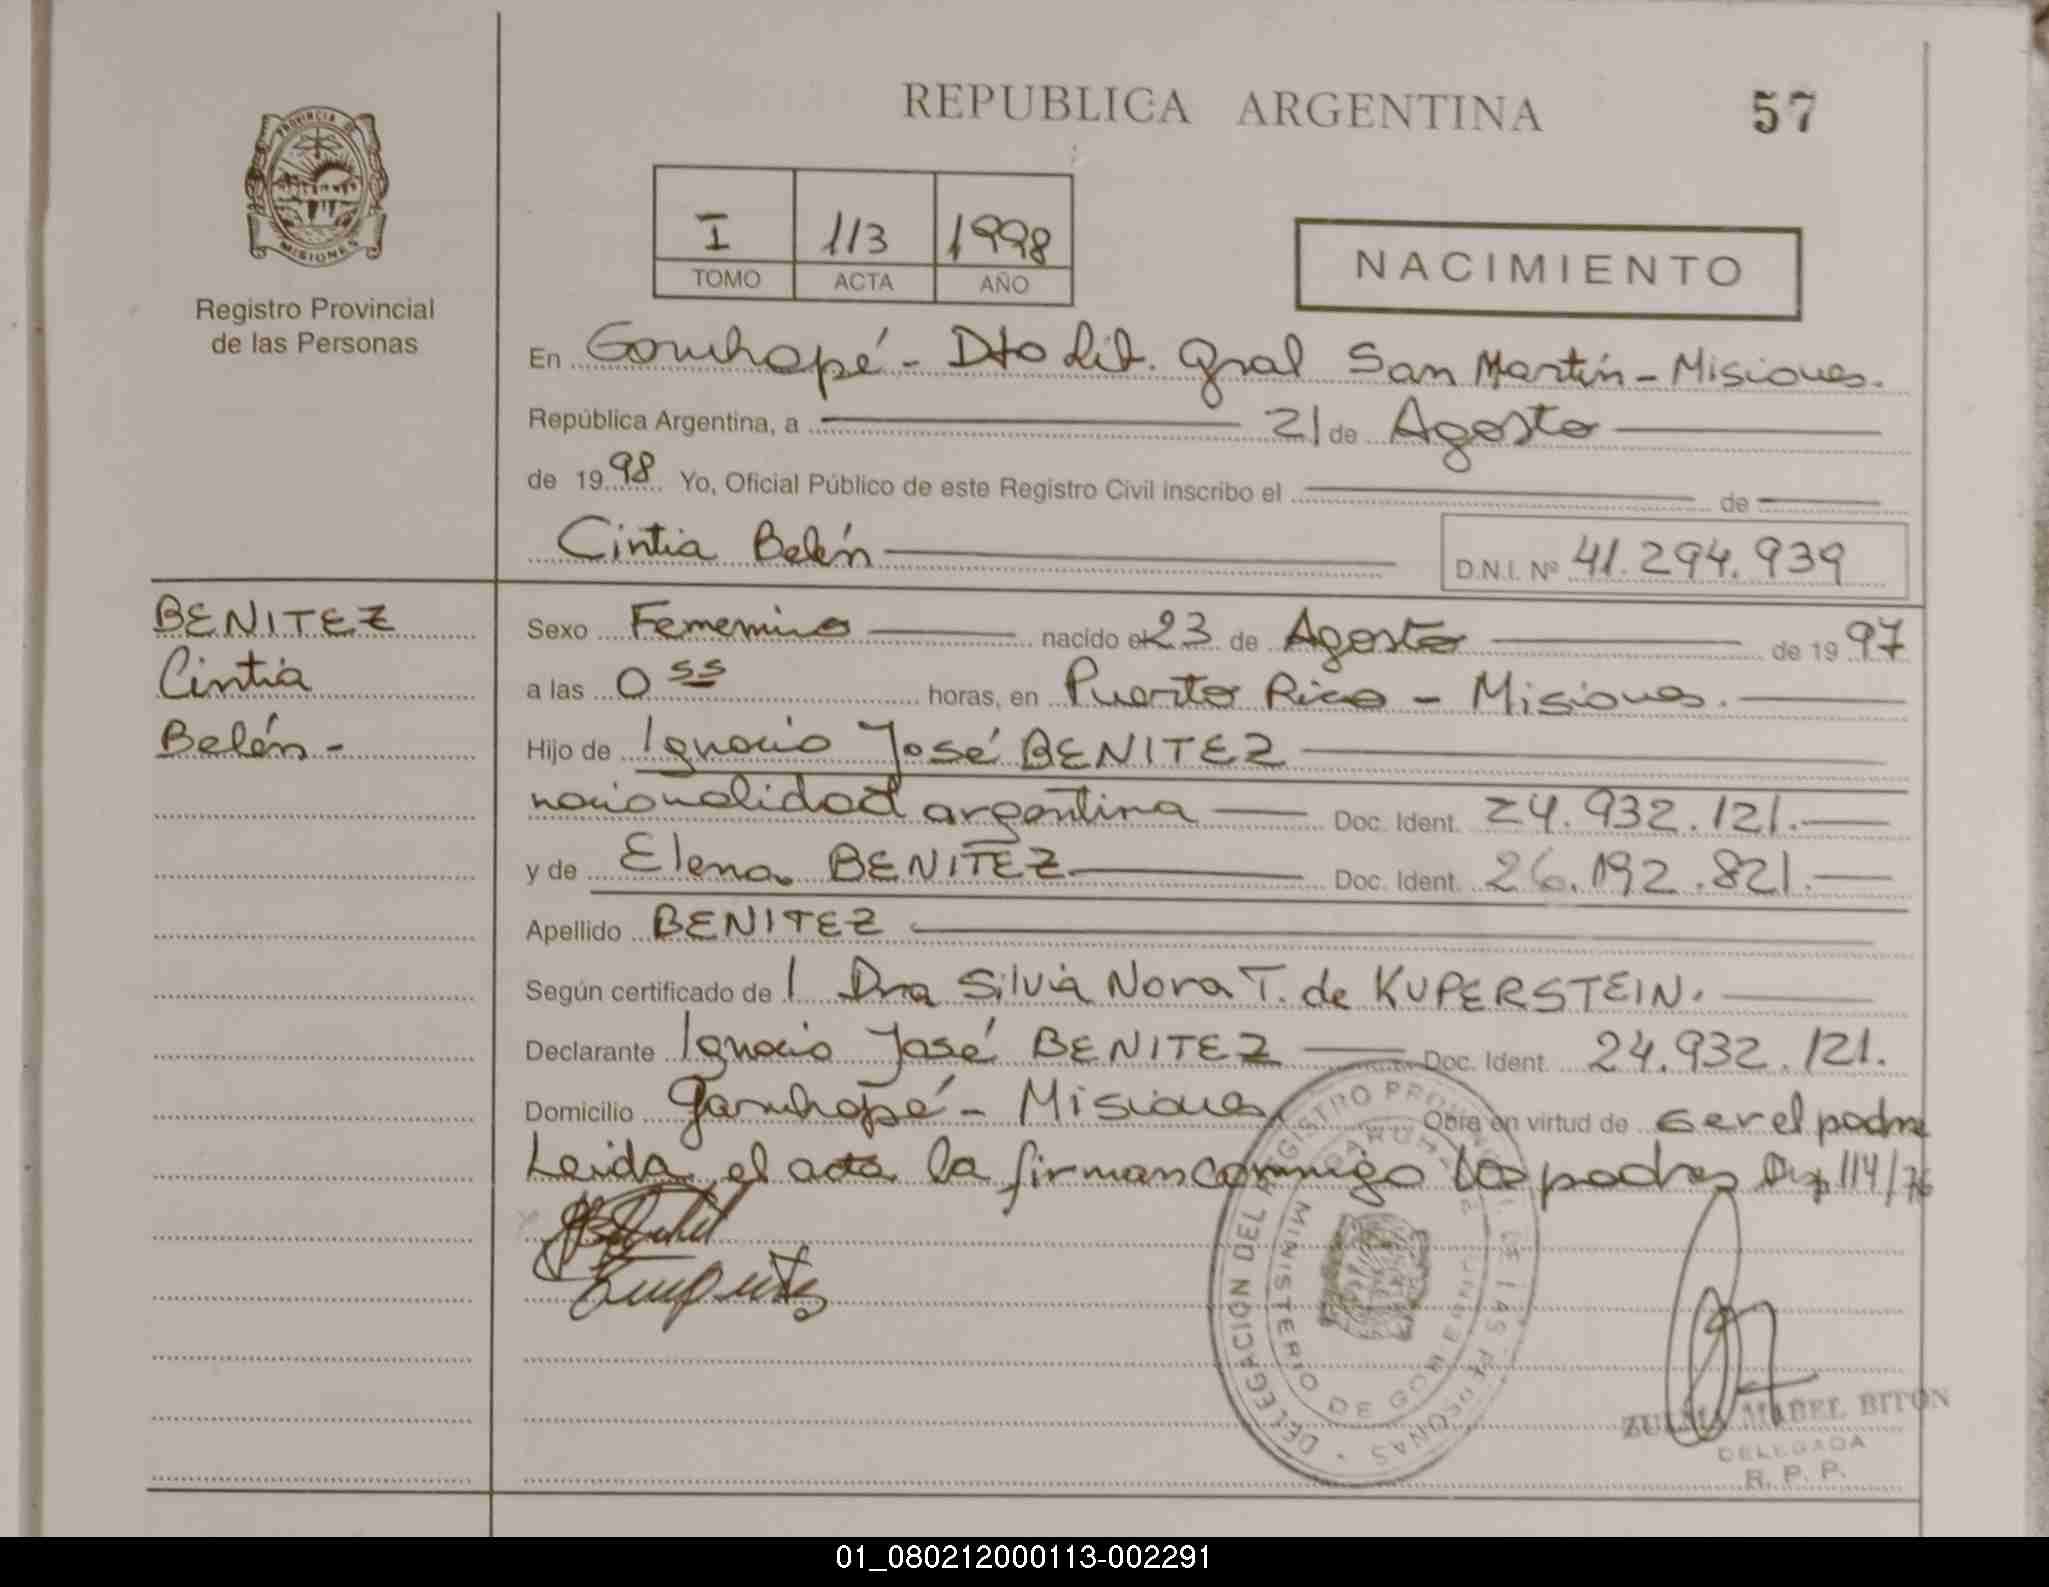 REPUBLICA ARGENTINA
57
PROVINCIA DE
MISIONES
Registro Provincial
de las Personas
I 113 1998
TOMO ACTA AÑO
NACIMIENTO
En Garuhapé - Dto Lib. Gral San Martín - Misiones.
República Argentina, a 21 de Agosto
de 1998 Yo, Oficial Público de este Registro Civil inscribo el de
Cintia Belén D.N.I. Nº 41.294.939
BENITEZ
Cintia
Belén -
Sexo Femenino nacido el 23 de Agosto de 1997
a las 0 55 horas, en Puerto Rico - Misiones.
Hijo de Ignacio José BENITEZ
nacionalidad argentina Doc. Ident. 24.932.121.
y de Elena BENITEZ Doc. Ident. 26.192.821.
Apellido BENITEZ
Según certificado de / Dra Silvia Nora T. de KUPERSTEIN.
Declarante Ignacio José BENITEZ Doc. Ident. 24.932.121.
Domicilio Garuhapé - Misiones Obra en virtud de ser el padre
Leida el acta la firman conmigo los padres Disp 114/76
DELEGACION DEL REGISTRO PROVINCIAL DE LAS PERSONAS
GARUHAPE
MINISTERIO DE GOBIERNO
ZULMA MABEL BITON
DELEGADA
R. P. P.
01_080212000113-002291